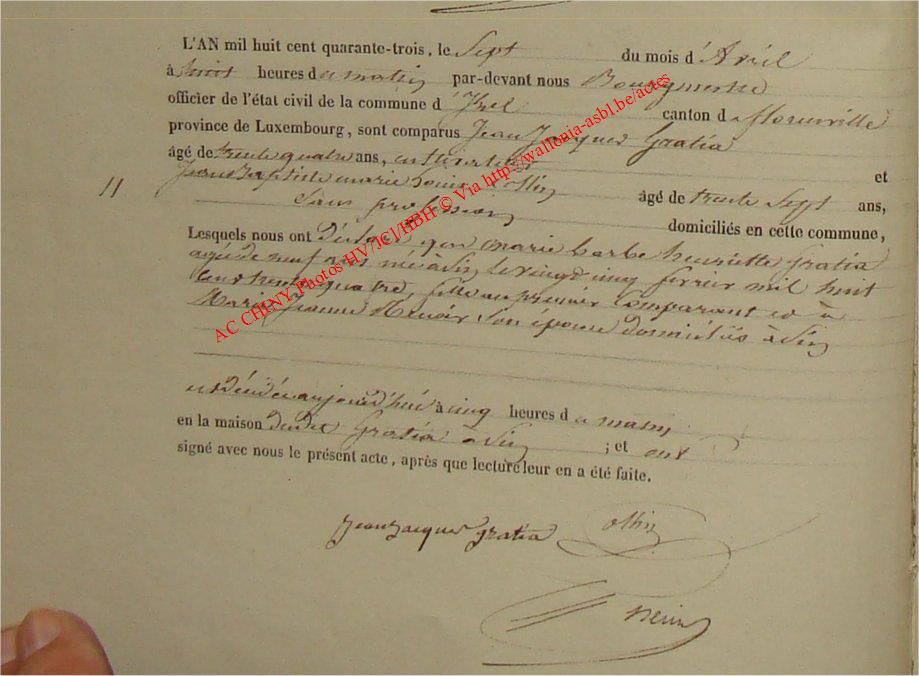 L'AN mil huit cent quarante-trois, le Sept du mois d'Avril
à huit heures du matin par-devant nous Bourgmestre
officier de l'état civil de la commune d'Izel canton de florenville
province de Luxembourg, sont comparus Jean Jacques Gratia
âgé de trente quatre ans, cultivateur et
Jean Baptiste marie Louis âgé de trente Sept ans,
11
Sans profession domiciliés en cette commune,
Lesquels nous ont déclaré que marie barbe henriette Gratia
agée de neuf ans née à le vingt cinq fevrier mil huit
Cent trente quatre, fille au premier Comparant et à
Marie Jeanne Son épouse domiciliés à
est décédée aujourd'hui à cinq heures du matin
en la maison dudit Gratia à ; et ont
signé avec nous le présent acte, après que lecture leur en a été faite.
Jean Jacques Gratia
AC CHINY Photos HV/JCl/HBH © Via http://wallonia-asbl.be/actes